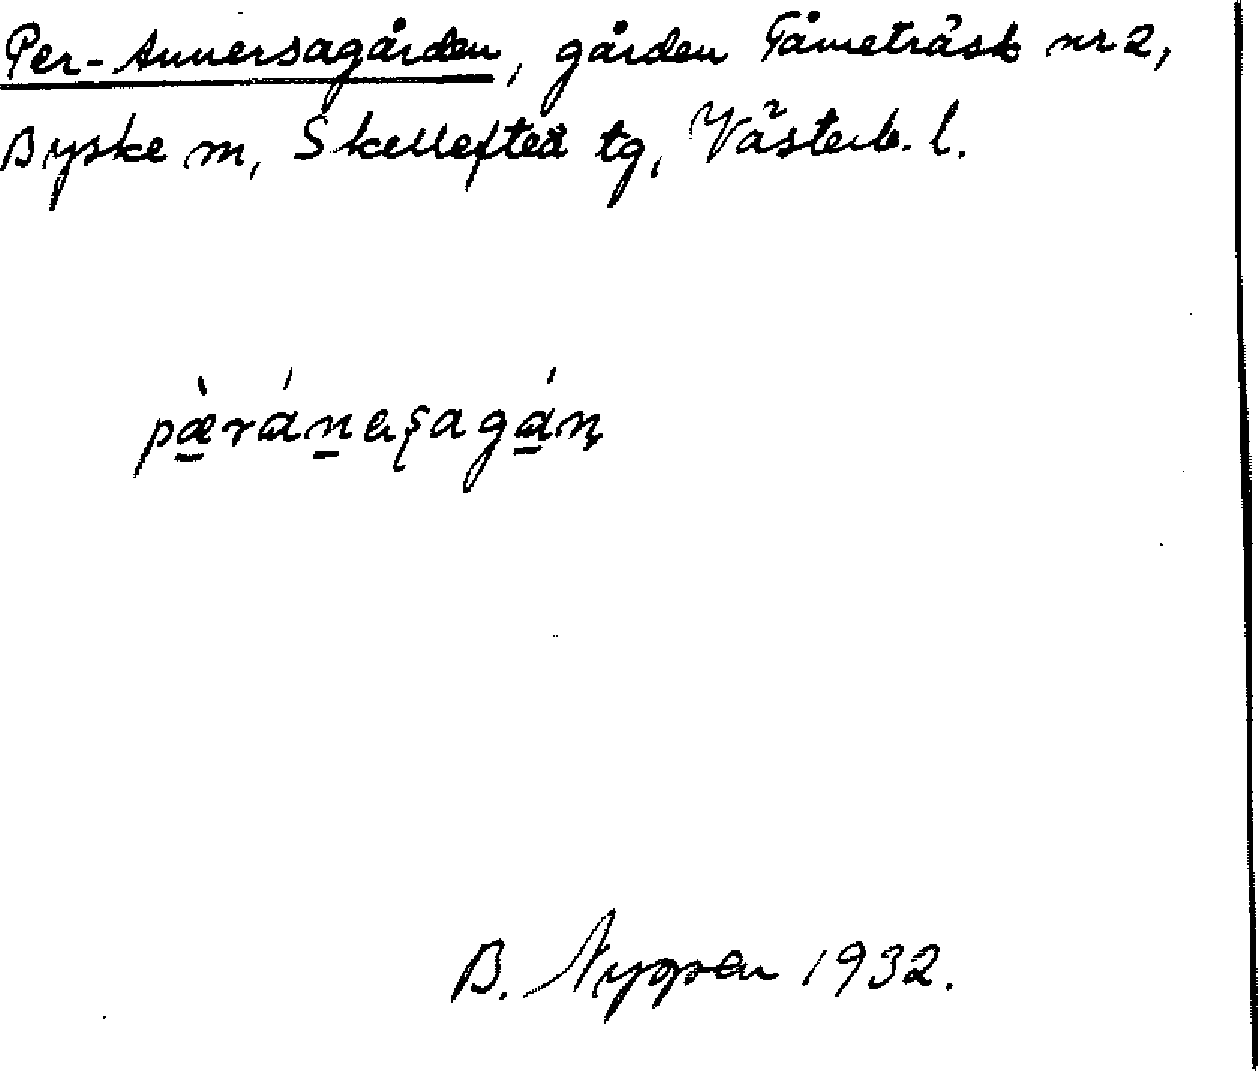 Per-Annersagården, gården Tåmeträsk nr 2,
Byske sn, Skellefteå tg, Västerb. l.
pæ̠̀rán̠eʂagá̠ɳ
B. Nygren 1932.